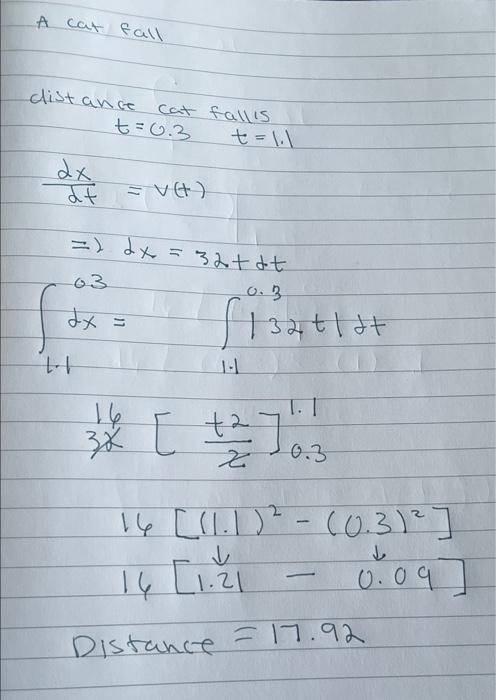 A cat fall
distance cat falls
t=0.3 t=1.1
dx/dt = v(t)
=> dx = 32t dt
∫_{1.1}^{03} dx = ∫_{1.1}^{0.3} |32t| dt
16 32 [t2/2]_{0.3}^{1.1}
16 [(1.1)² - (0.3)²]
↓ ↓
16 [1.21 - 0.09]
Distance = 17.92